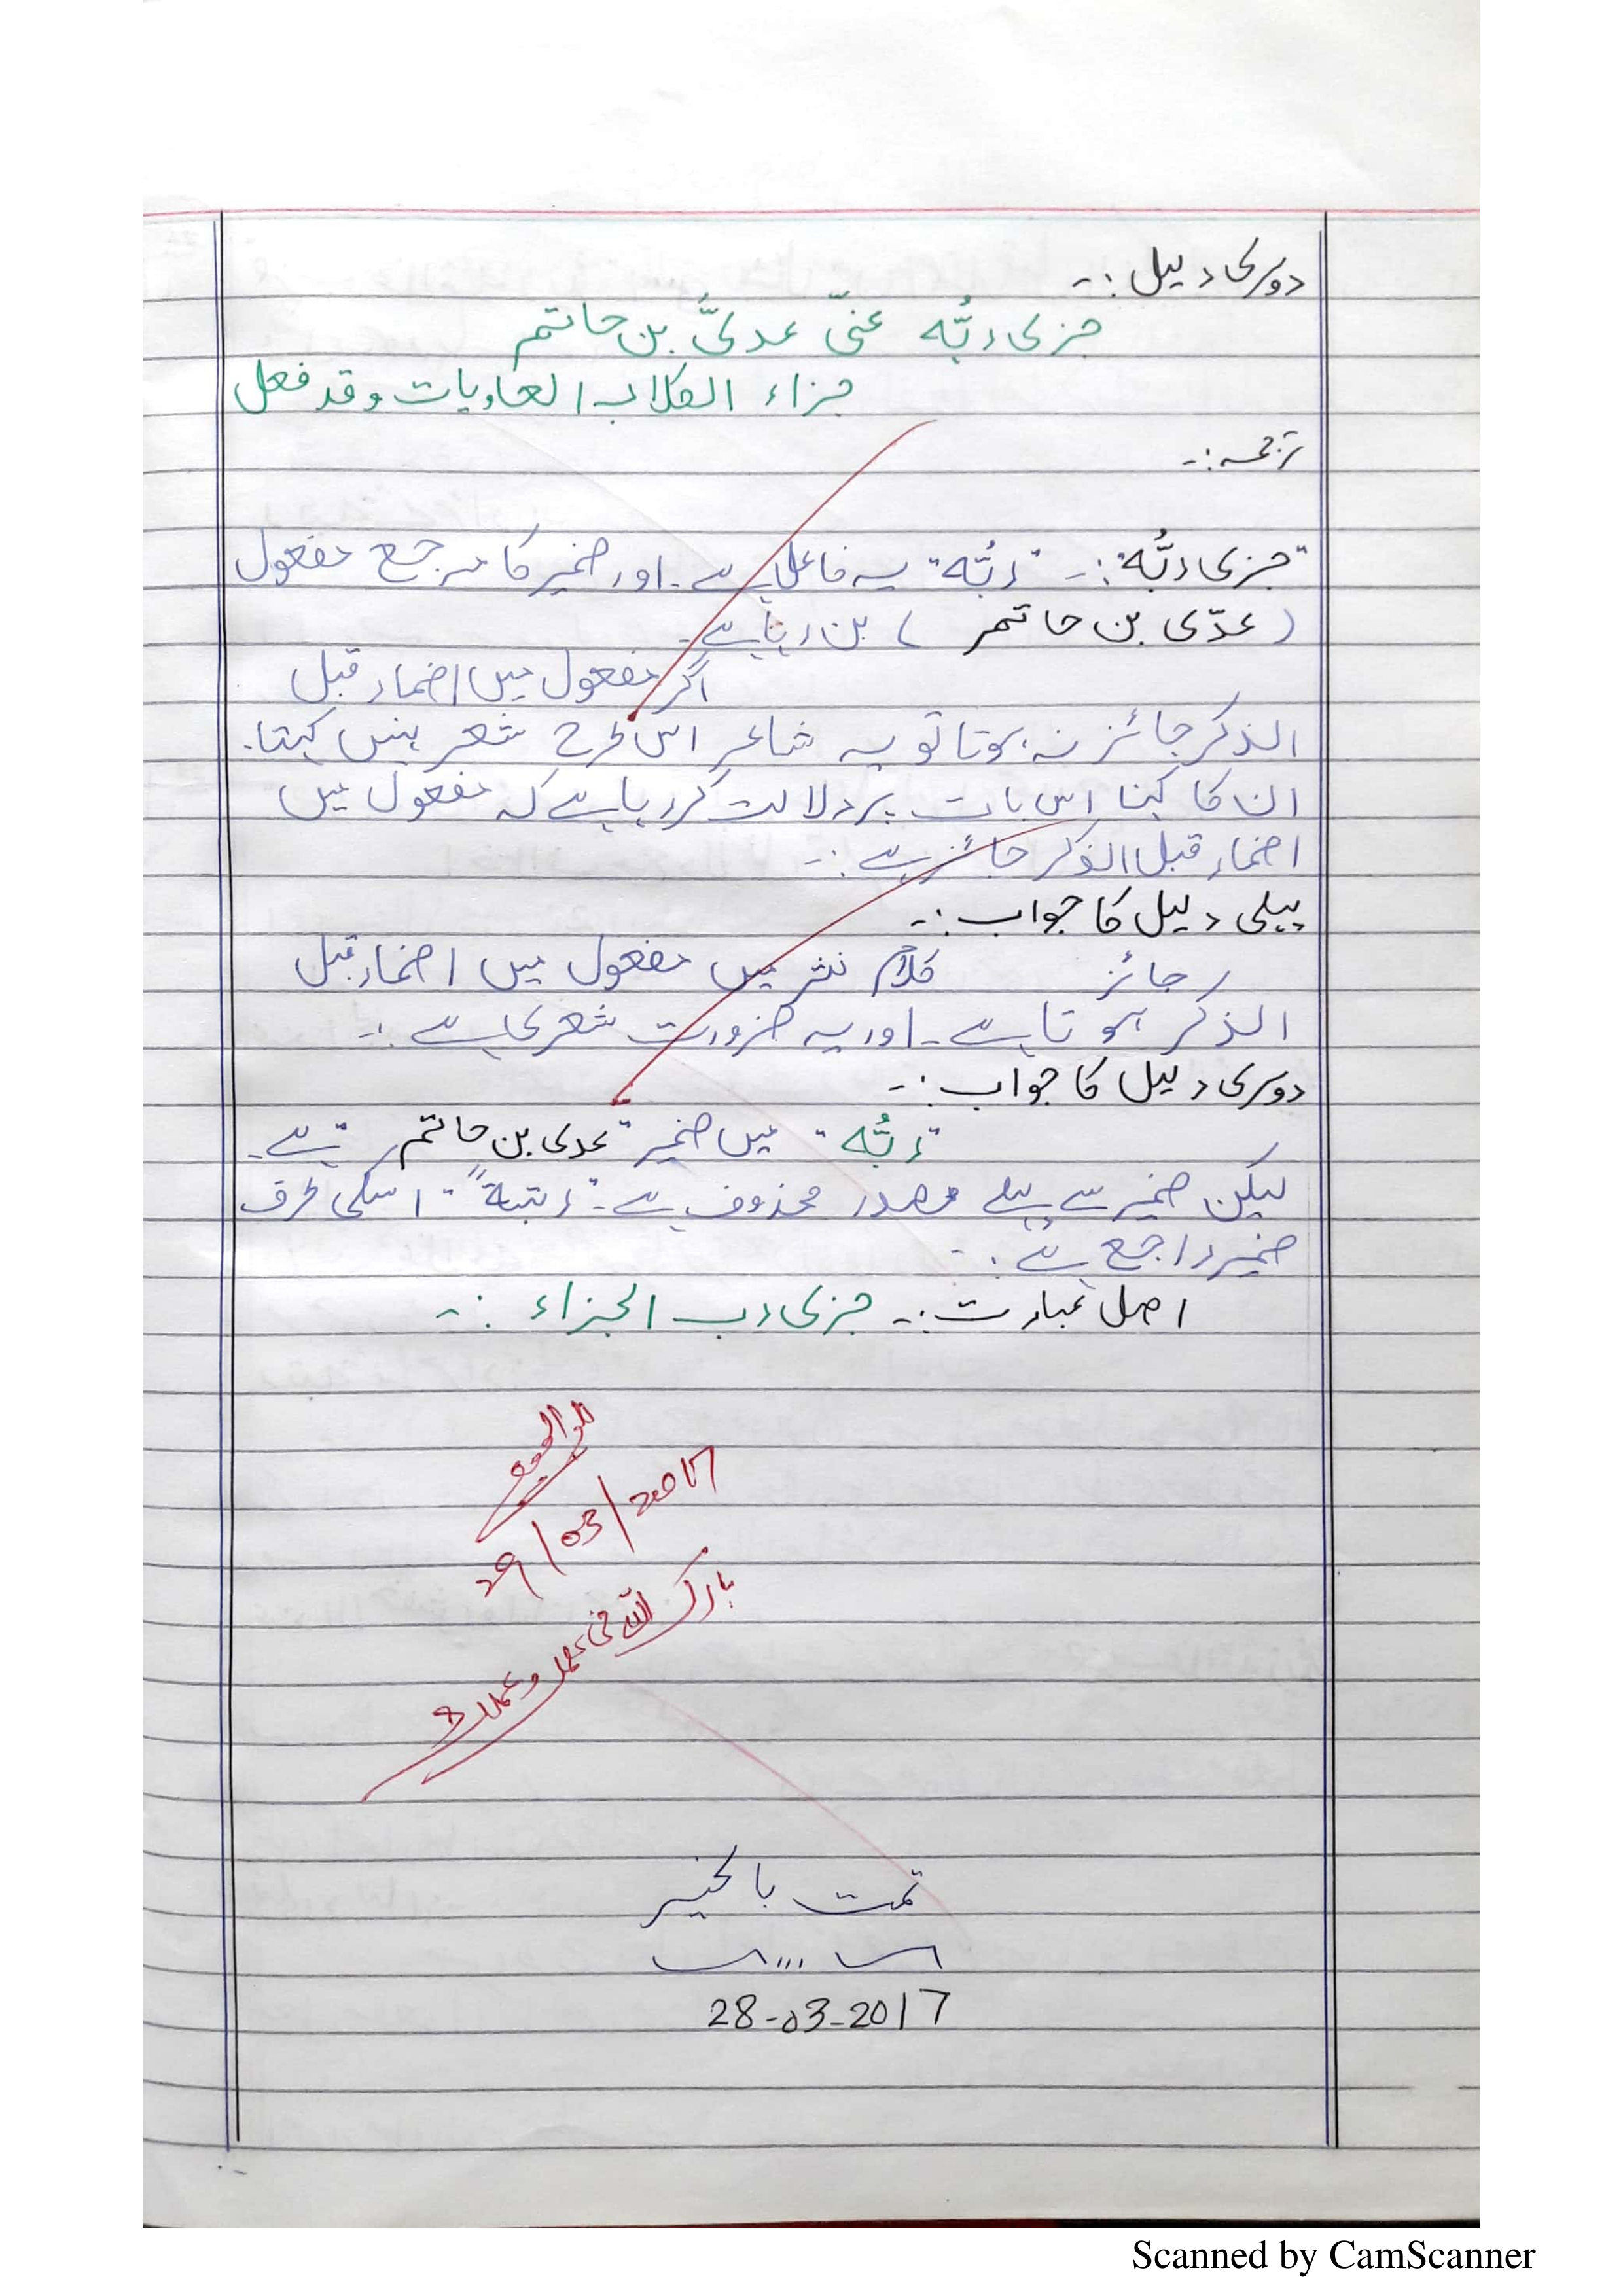 دوسری دلیل :۔
جزی ربُّه عنّی عدیَّ بن حاتم
جزاء الکلاب العاویات وقد فعل
ترجمہ :۔
"جزی ربُّه" :۔ "ربُّه" یہ فاعل ہے ۔ اور ضمیر کا مرجع مفعول
(عدّی بن حاتم) بن رہا ہے ۔
اگر مفعول میں اضمار قبل
الذکر جائز نہ ہوتا تو یہ شاعر اس طرح شعر نہیں کہتا ۔
ان کا کہنا اس بات پر دلالت کر رہا ہے کہ مفعول میں
اضمار قبل الذکر جائز ہے :۔
پہلی دلیل کا جواب :۔
کلامِ نثر میں مفعول میں اضمار قبل
الذکر جائز ہوتا ہے ۔ اور یہ ضرورت شعری ہے :۔
دوسری دلیل کا جواب :۔
"ربُّه" میں ضمیر "عدی بن حاتم" ہے ۔
لیکن ضمیر سے پہلے مصدر محذوف ہے ۔ اسکی طرف
ضمیر راجع ہے :۔
اصل عبارت :۔ جزی رب الجزاء :۔
29/03/2017
بارک اللہ فی
تمت بالخیر
28-03-2017
Scanned by CamScanner